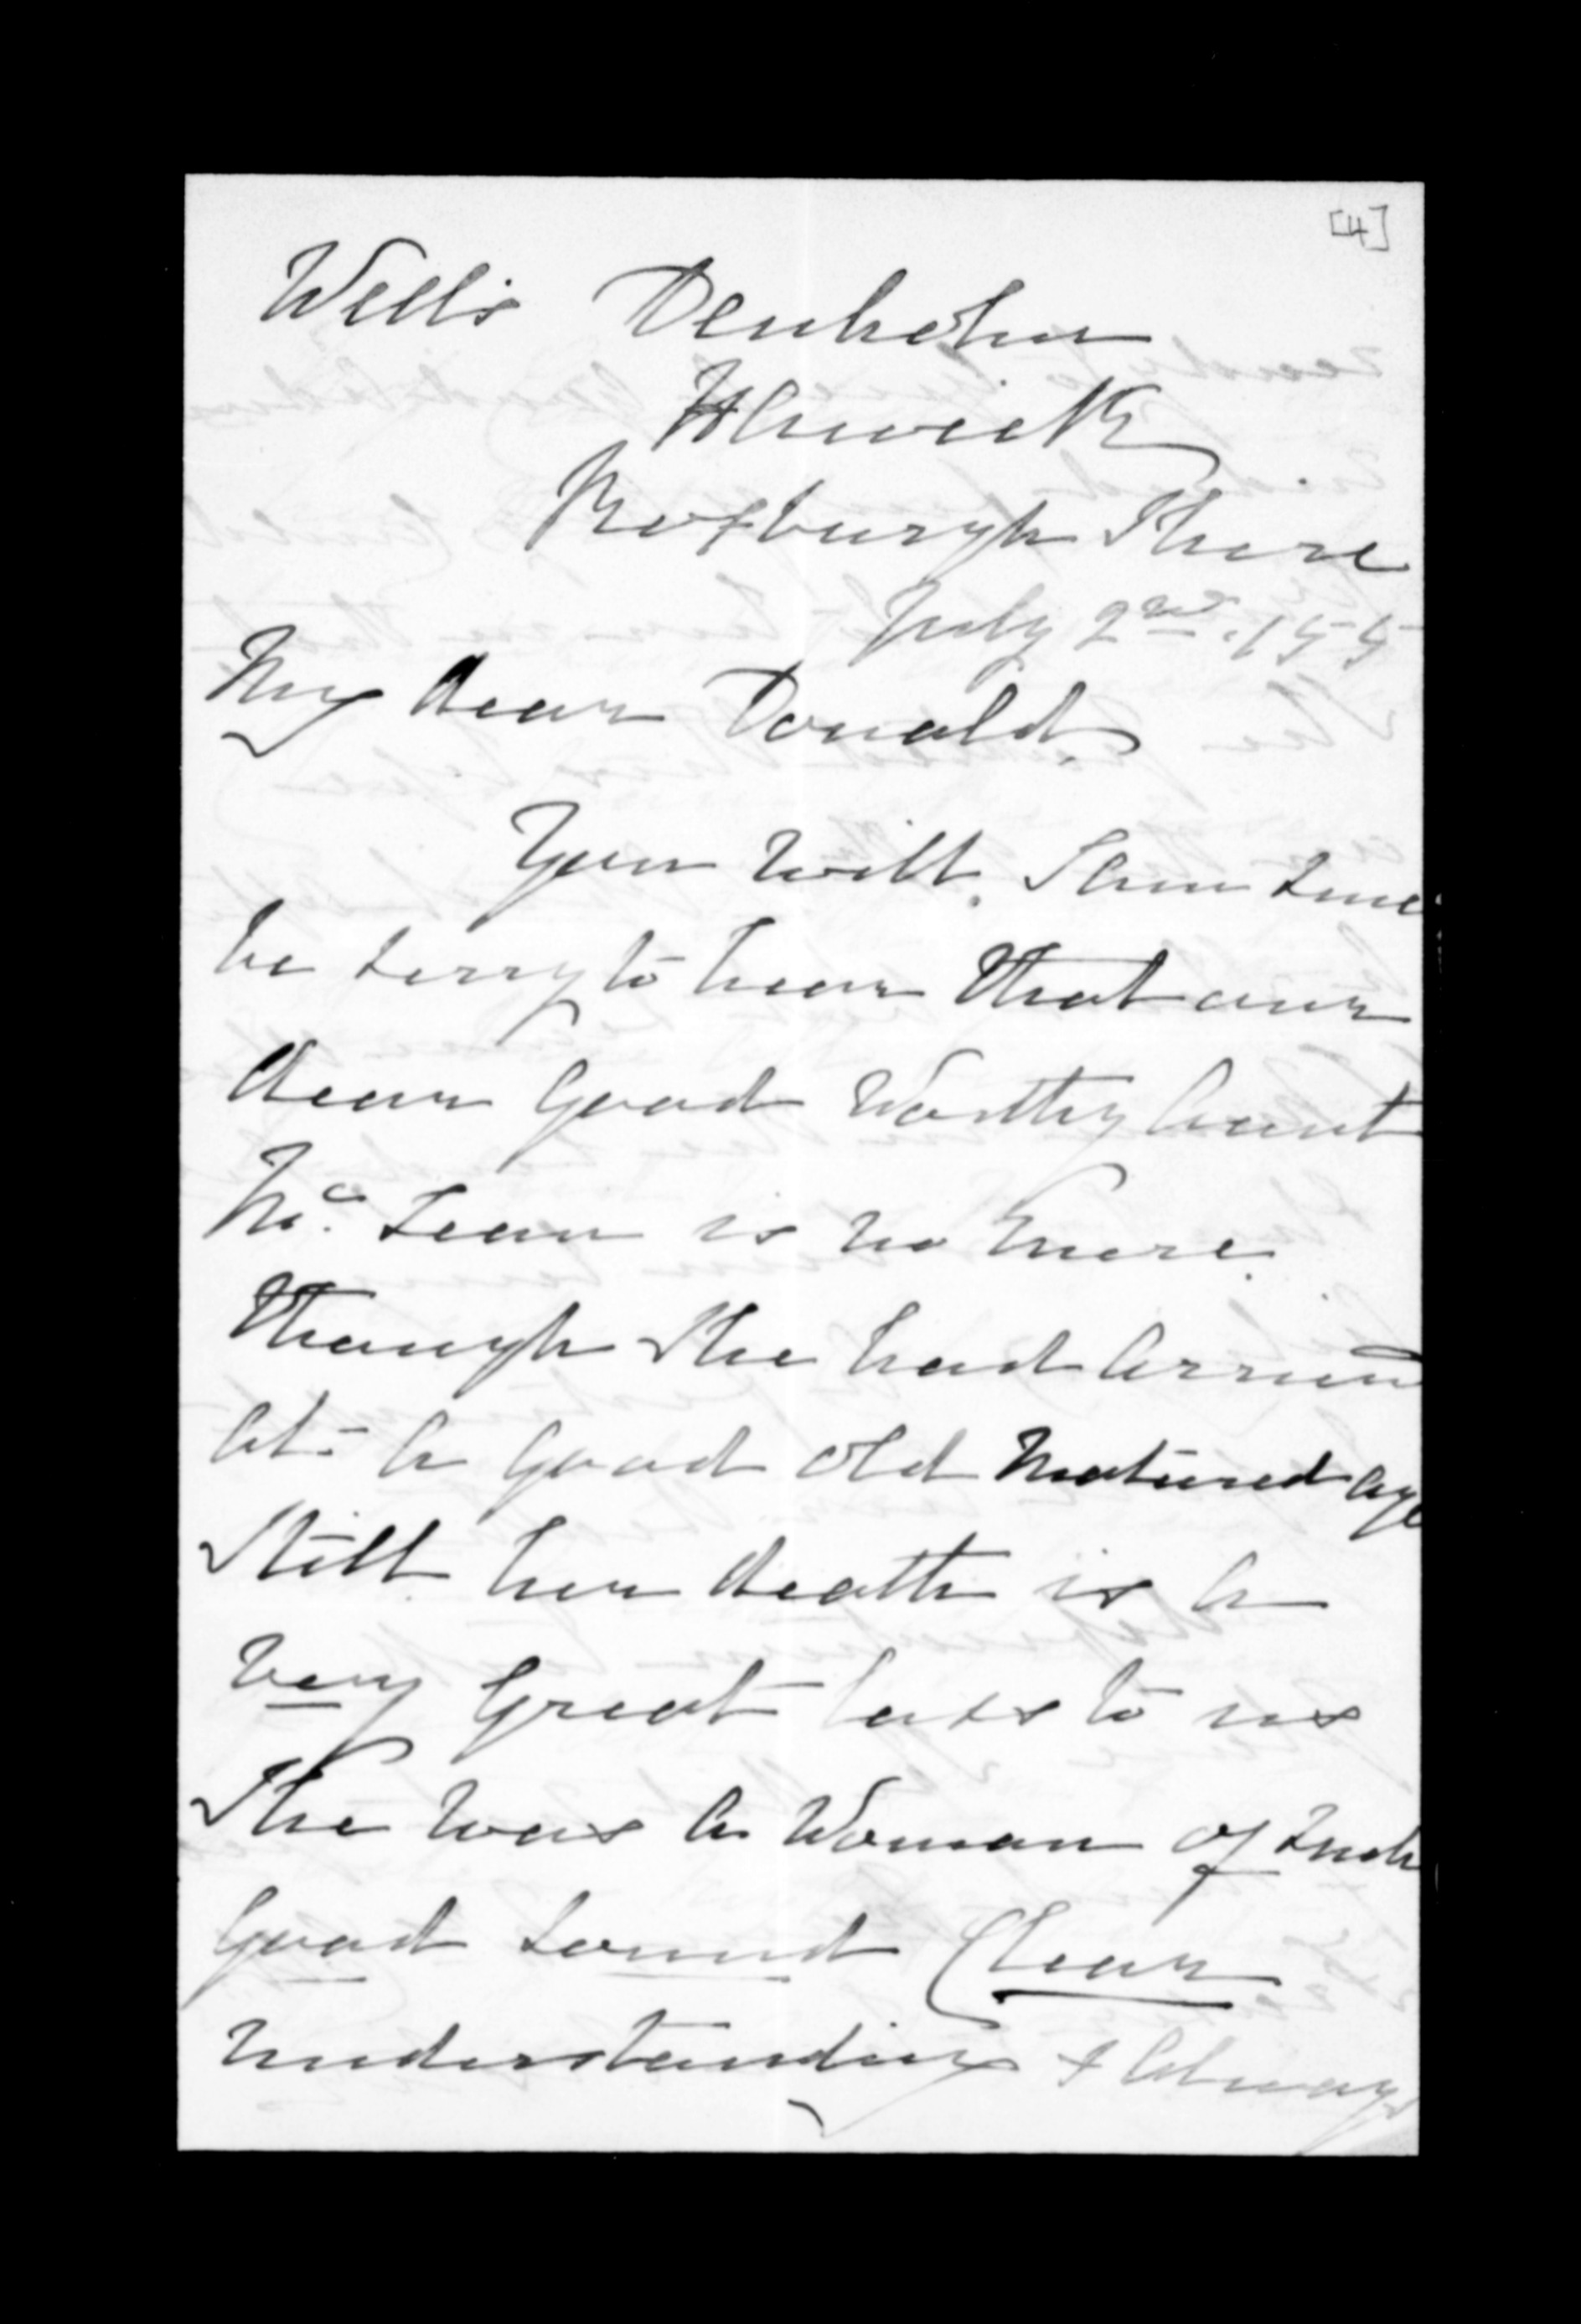 [4]
Wells Denholm
Hawick
Roxburgh Shire
July 2nd. /55
My dear Donald,
You will. I am sure
be sorry to hear that our
dear good Worthy Aunt
Mc. Lean is no more.
though She had arrived
at a good old matured age
Still her death is a
very great loss to us
She was a Woman of such
good sound Clear
understanding & always